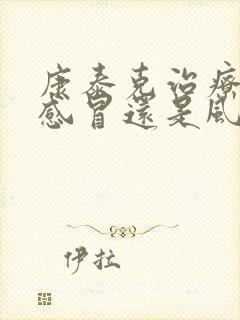 康泰克治療
感冒還是風
伊拉